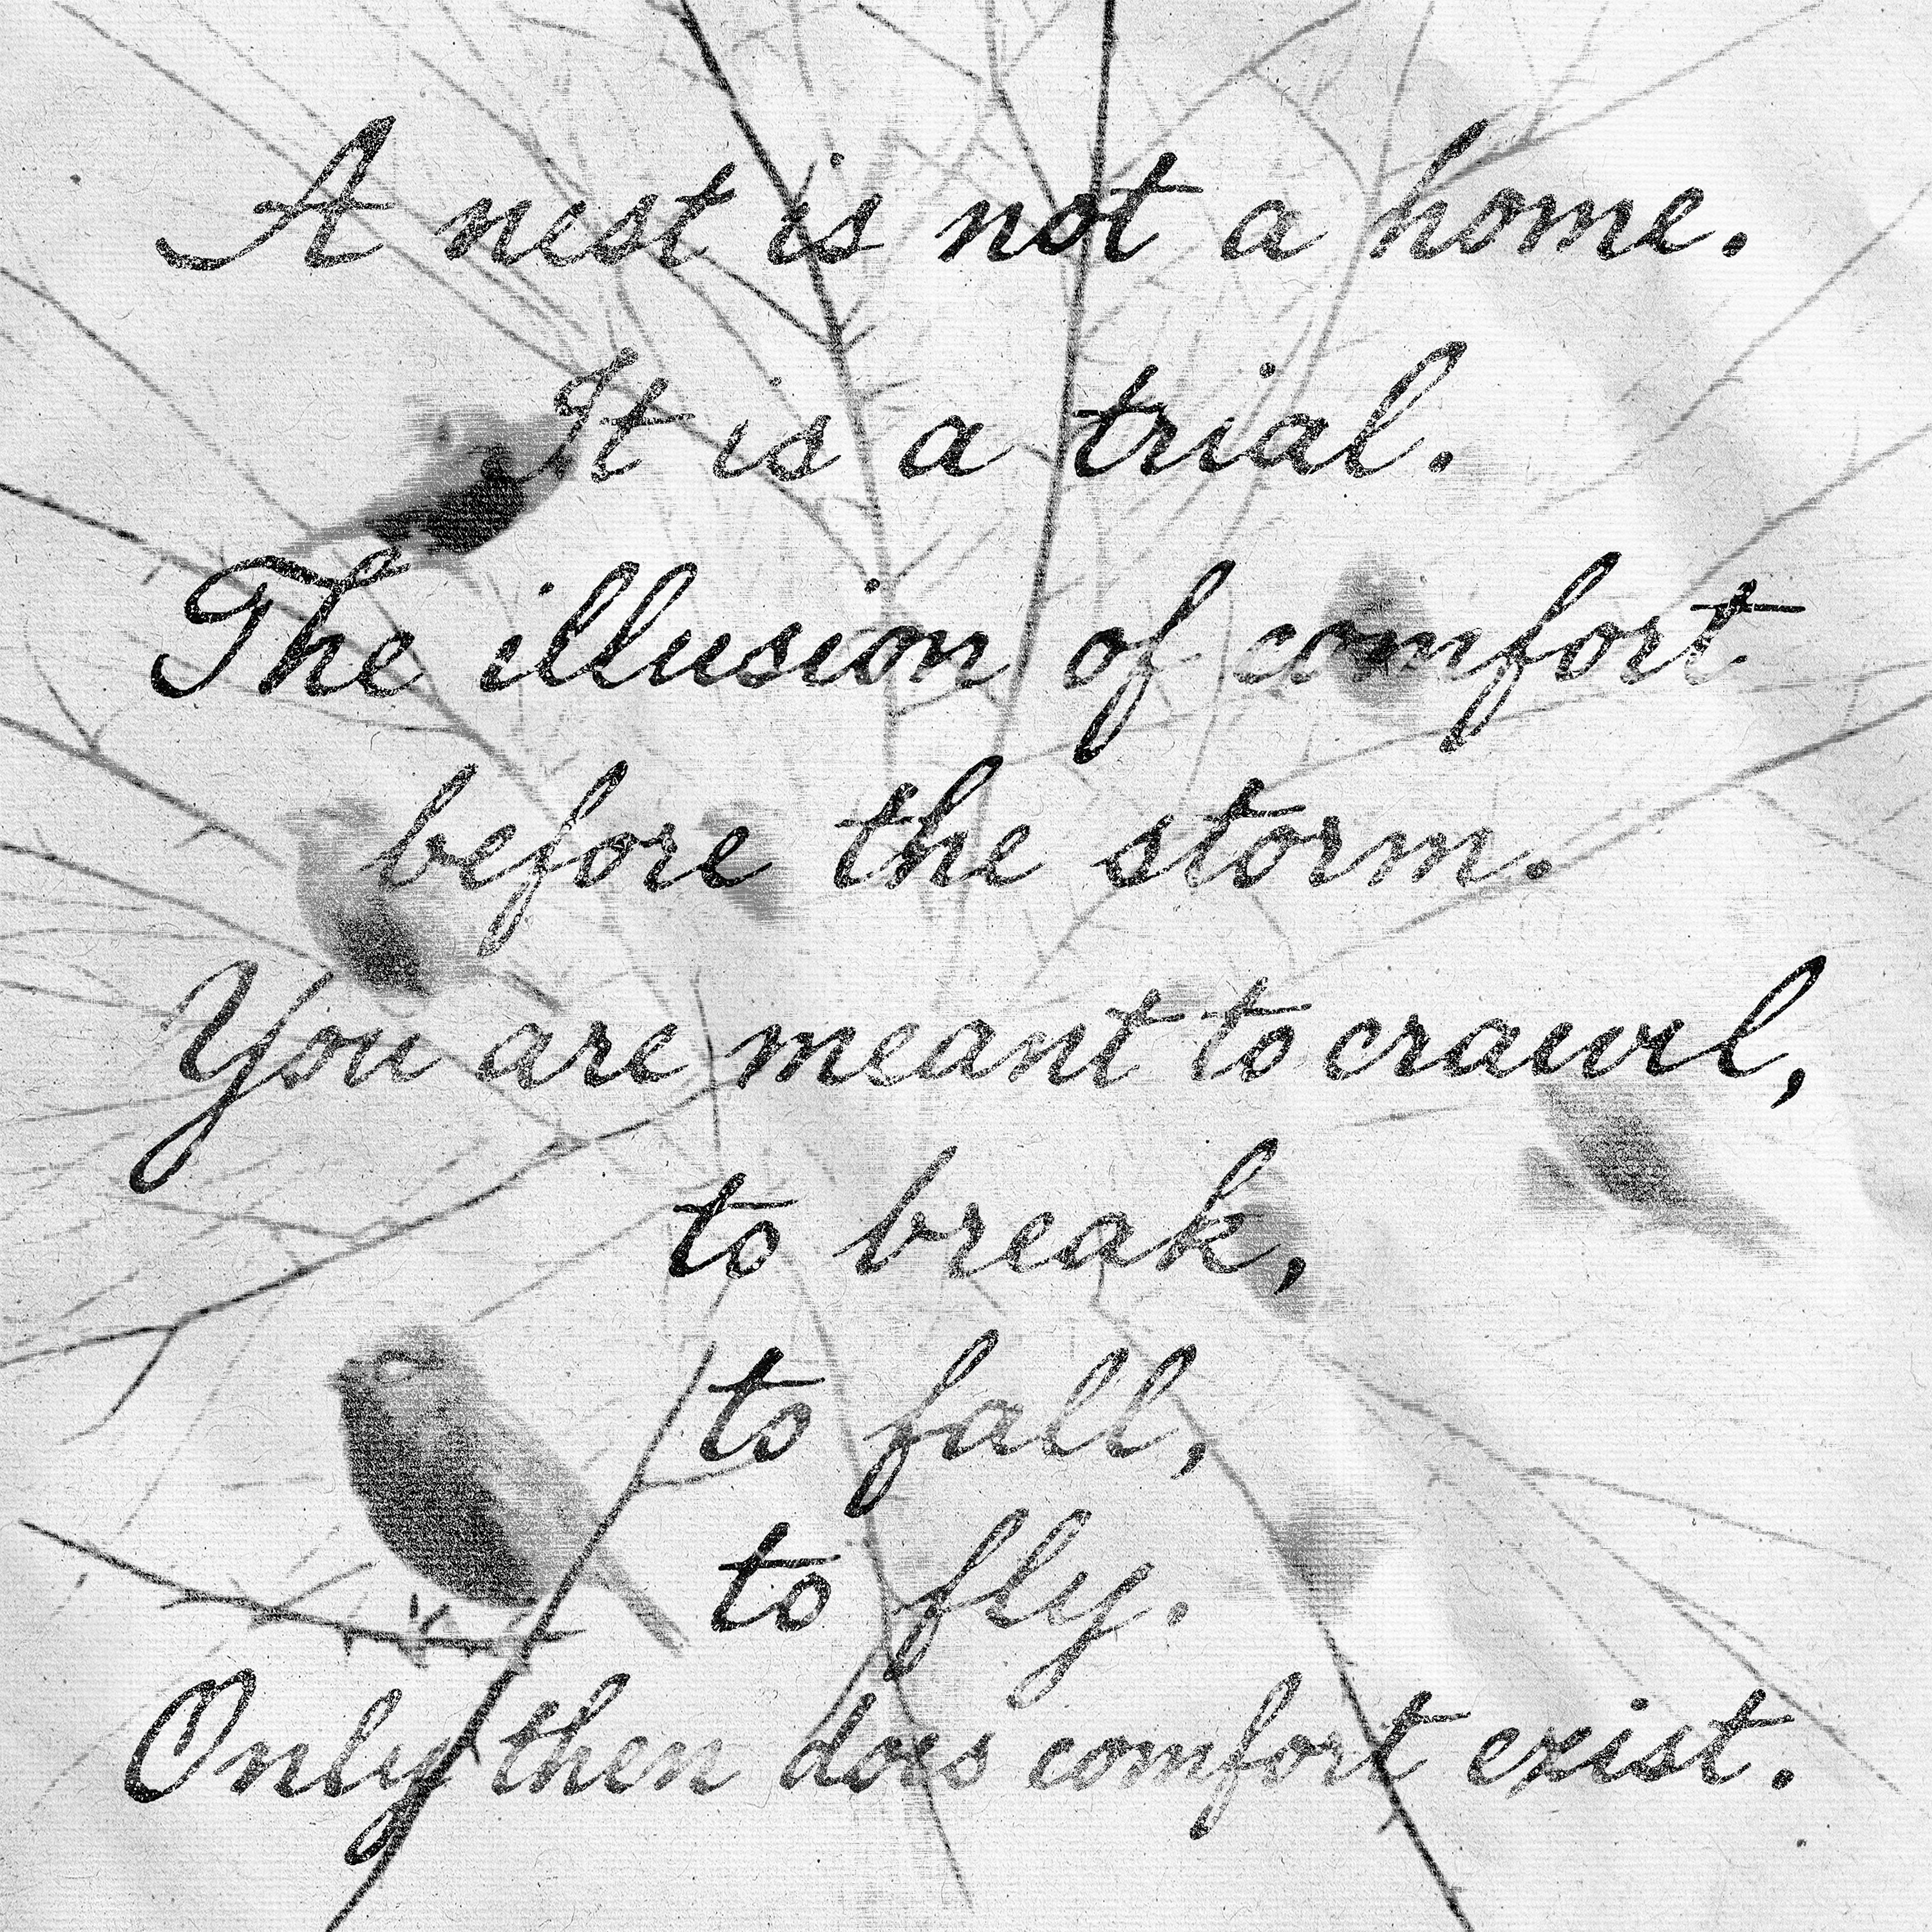 A nest is not a home.
It is a trial.
The illusion of comfort
before the storm.
You are meant to crawl,
to break,
to fall,
to fly.
Only then does comfort exist.